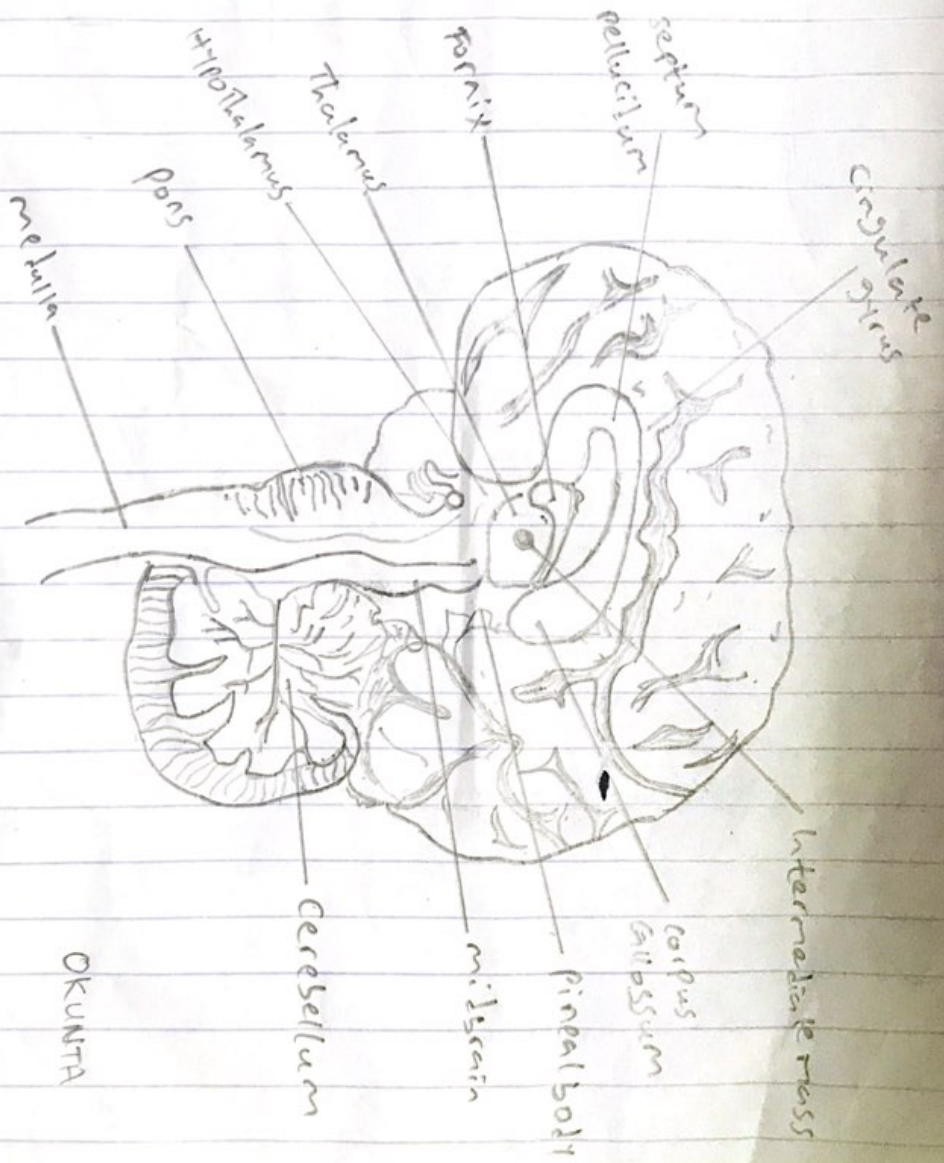 cingulate
gyrus
septum
pellucidum
Fornix
Thalamus
HYPOThalamus
Pons
medulla
Intermediate mass
corpus
callosum
Pineal body
midbrain
Cerebellum
OKUNTA